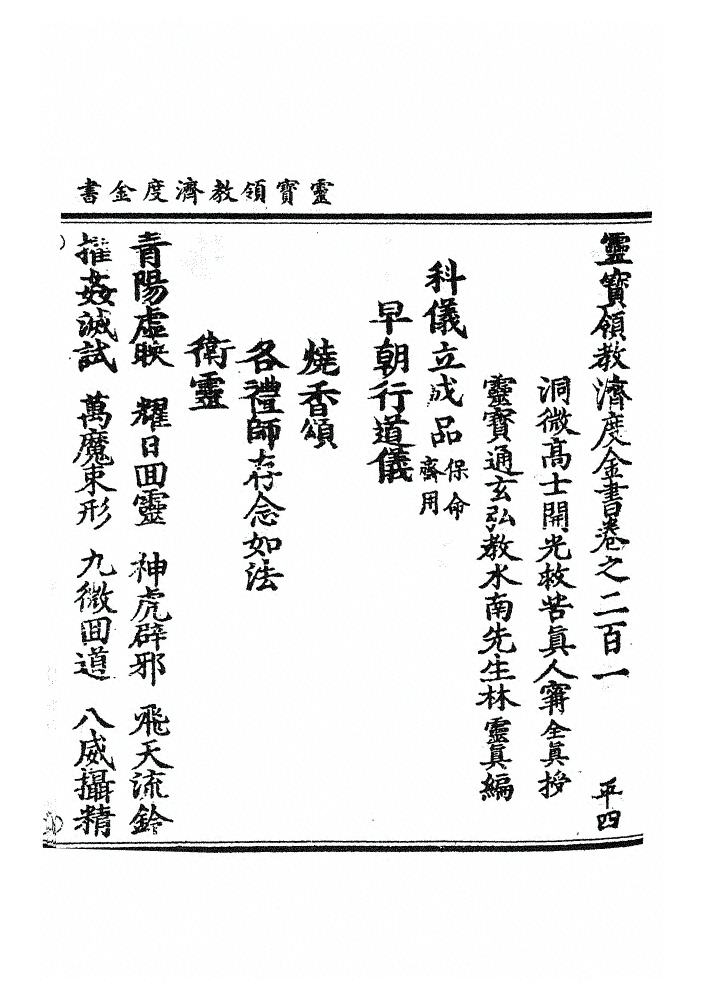 靈寶領教濟度金書
靈寶領教濟度金書卷之二百一 平四
洞微高士開光救苦眞人甯全眞授
靈寶通玄弘教水南先生林靈眞編
科儀立成品 保命齋用
早朝行道儀
燒香頌
各禮師存念如法
衛靈
青陽虛映 耀日回靈 神虎辟邪 飛天流鈴
摧姦滅試 萬魔束形 九微回道 八威攝精